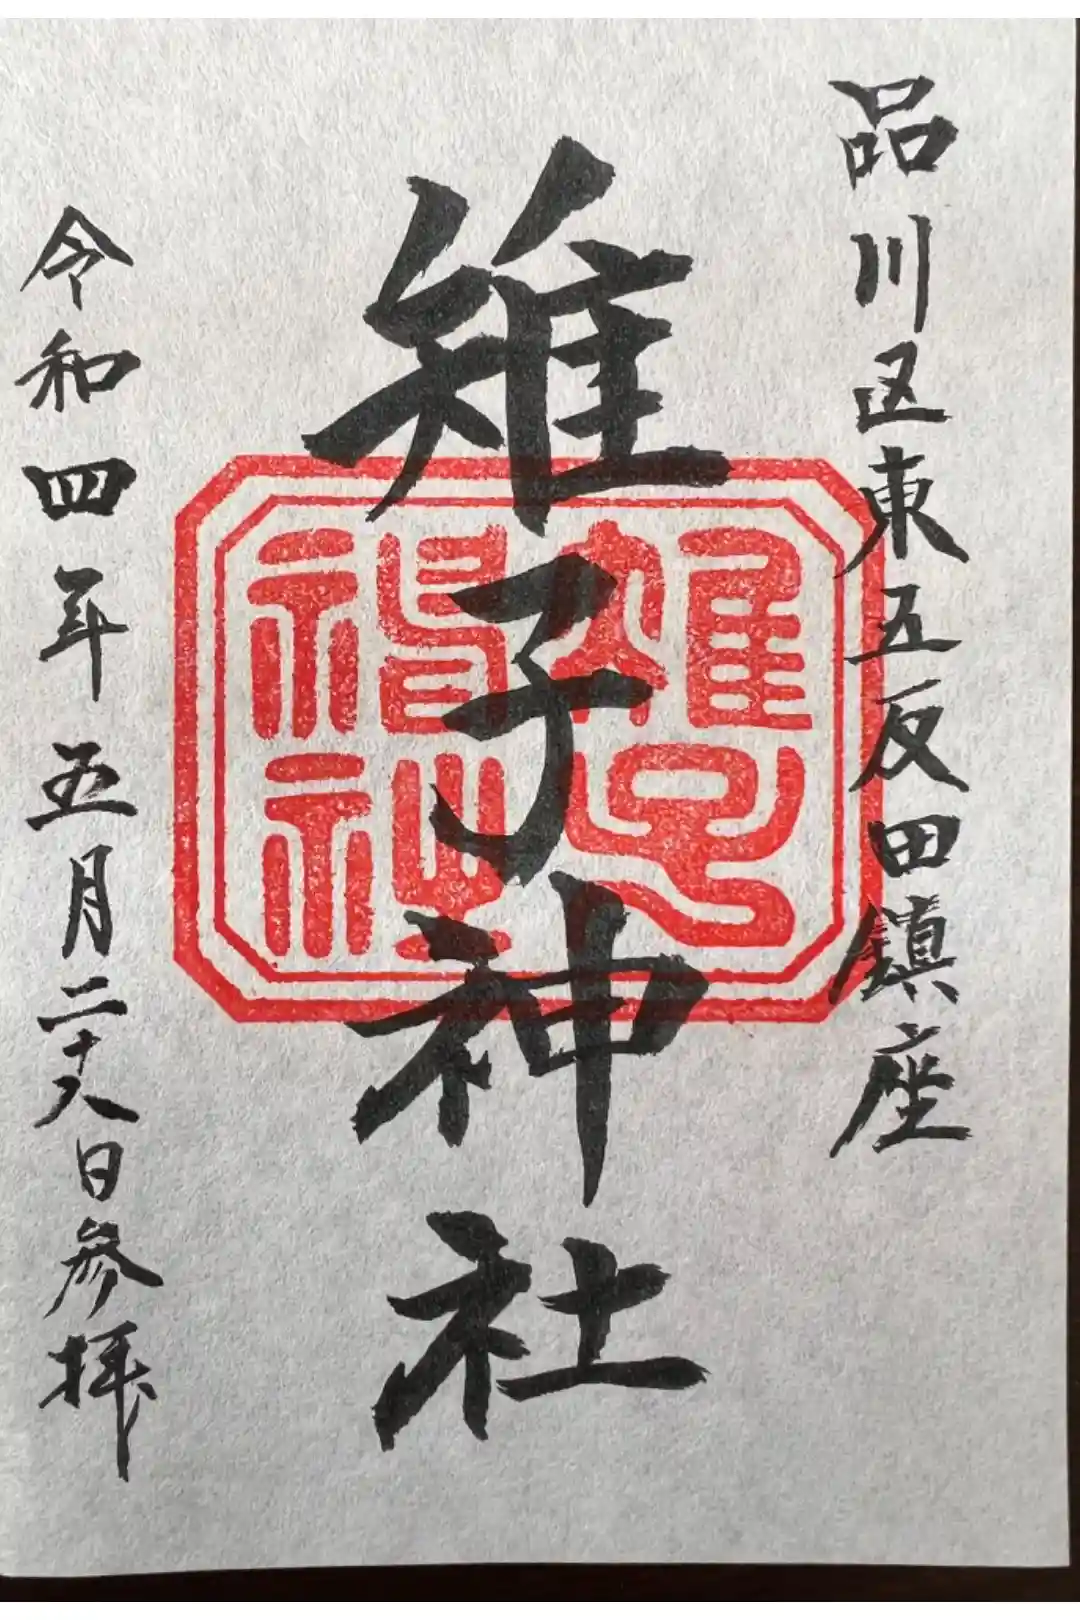 品川区東五反田鎮座
雉子神社
雉子
神社
令和四年五月二十八日参拝